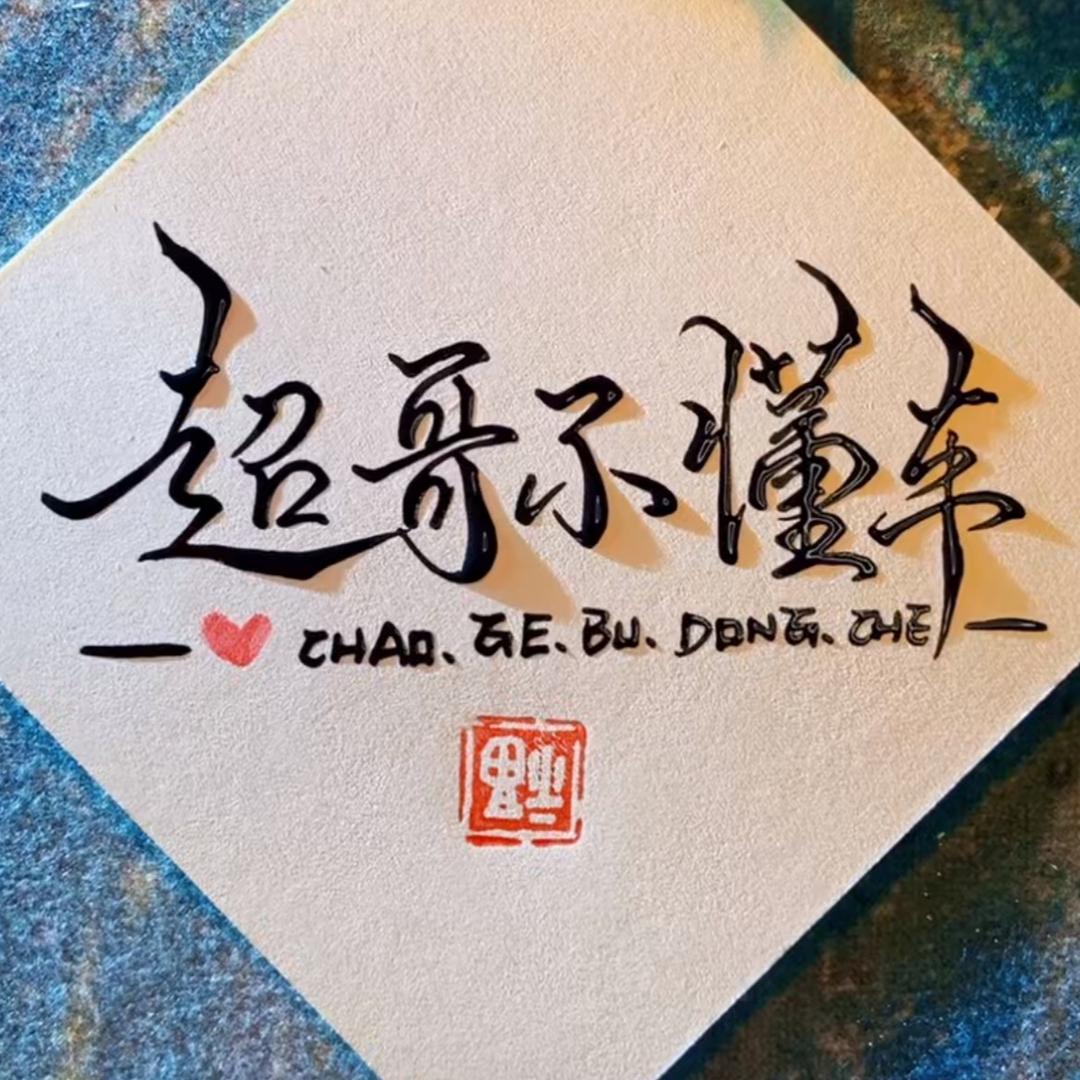 超哥不懂车
CHAO. GE. BU. DONG. CHE